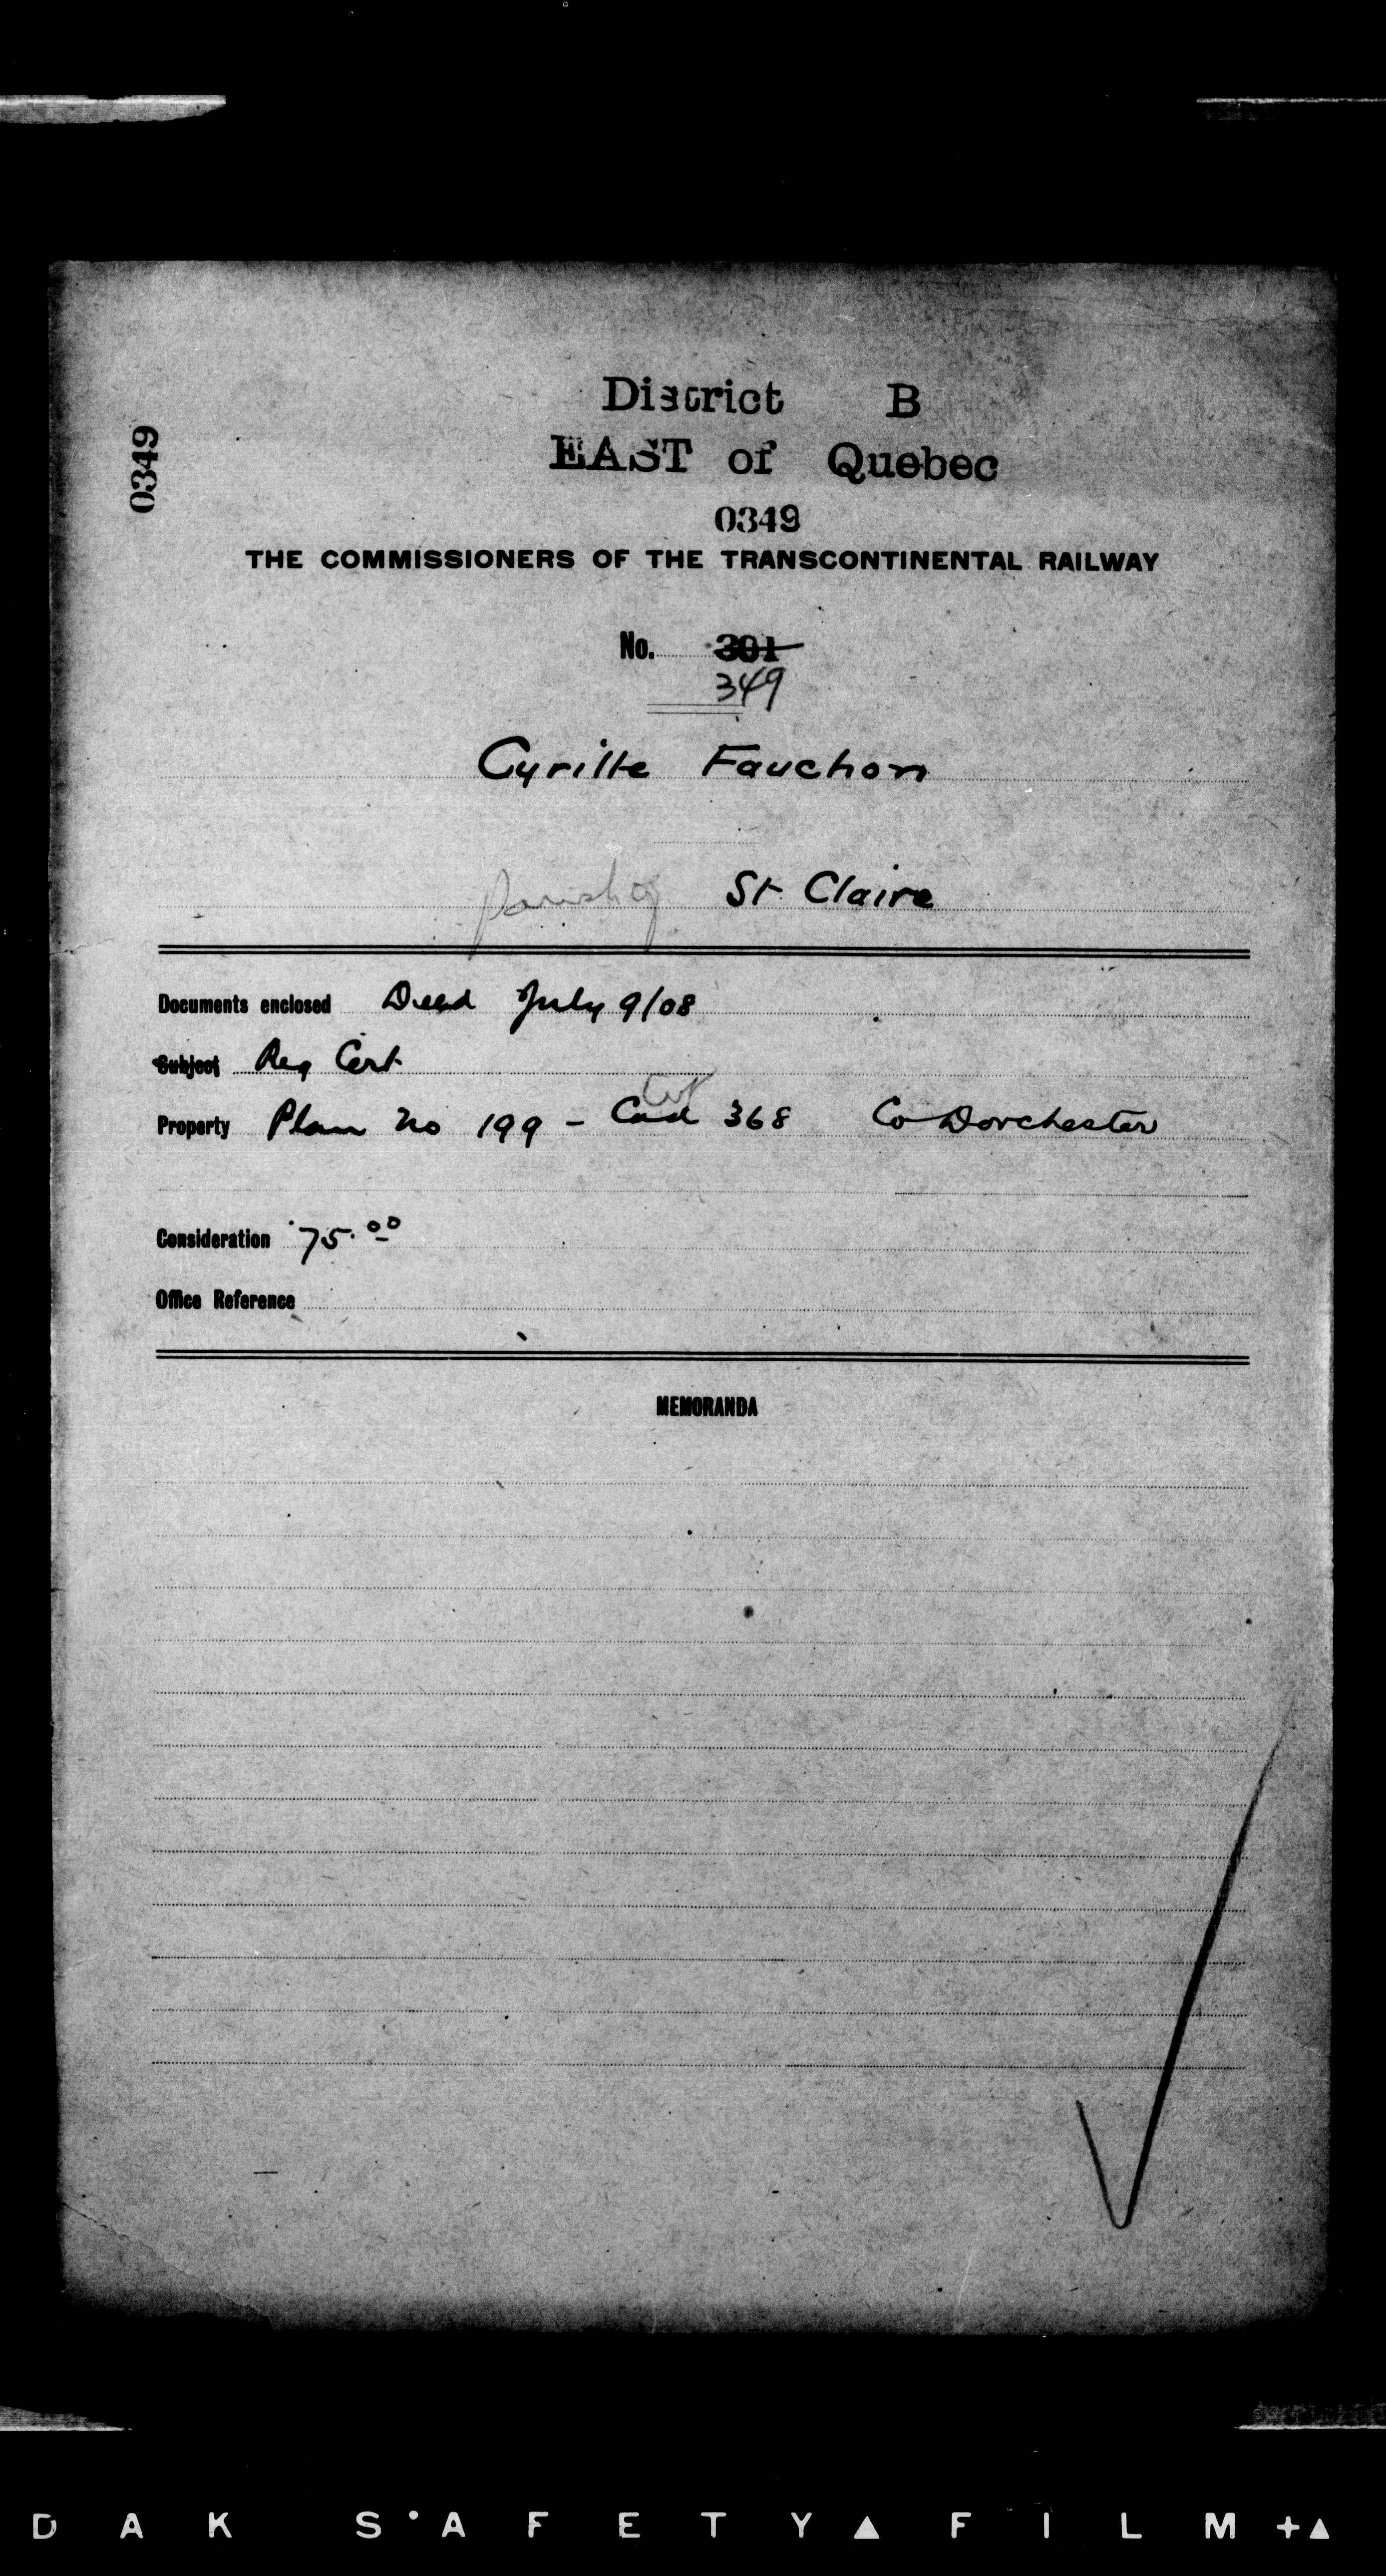 District B
EAST of Quebec
0349
0349
THE COMMISSIONERS OF THE TRANSCONTINENTAL RAILWAY
No. 301
349
Cyrille Fauchon
parish of St Claire
Documents enclosed Deed July 9/08
Subject Reg Cert
Property Plan No 199 - Cad 368 Co Dorchester
Lot
Consideration 75.00
Office Reference
MEMORANDA
DAK S'AFETY▲FILM+▲